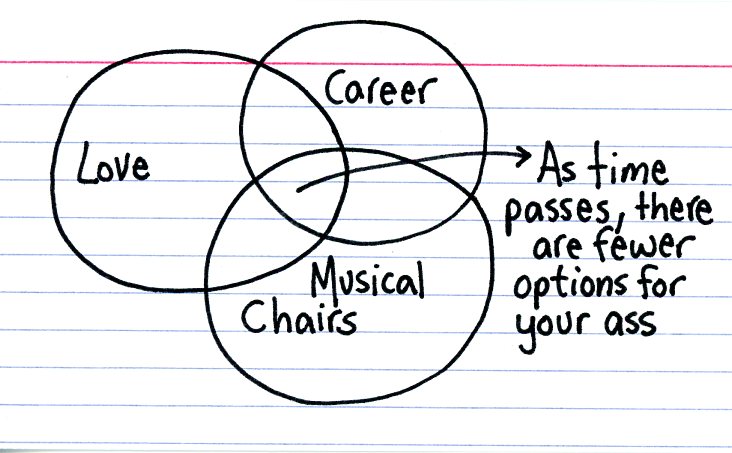 Career
Love
As time
passes, there
are fewer
options for
your ass
Musical
Chairs